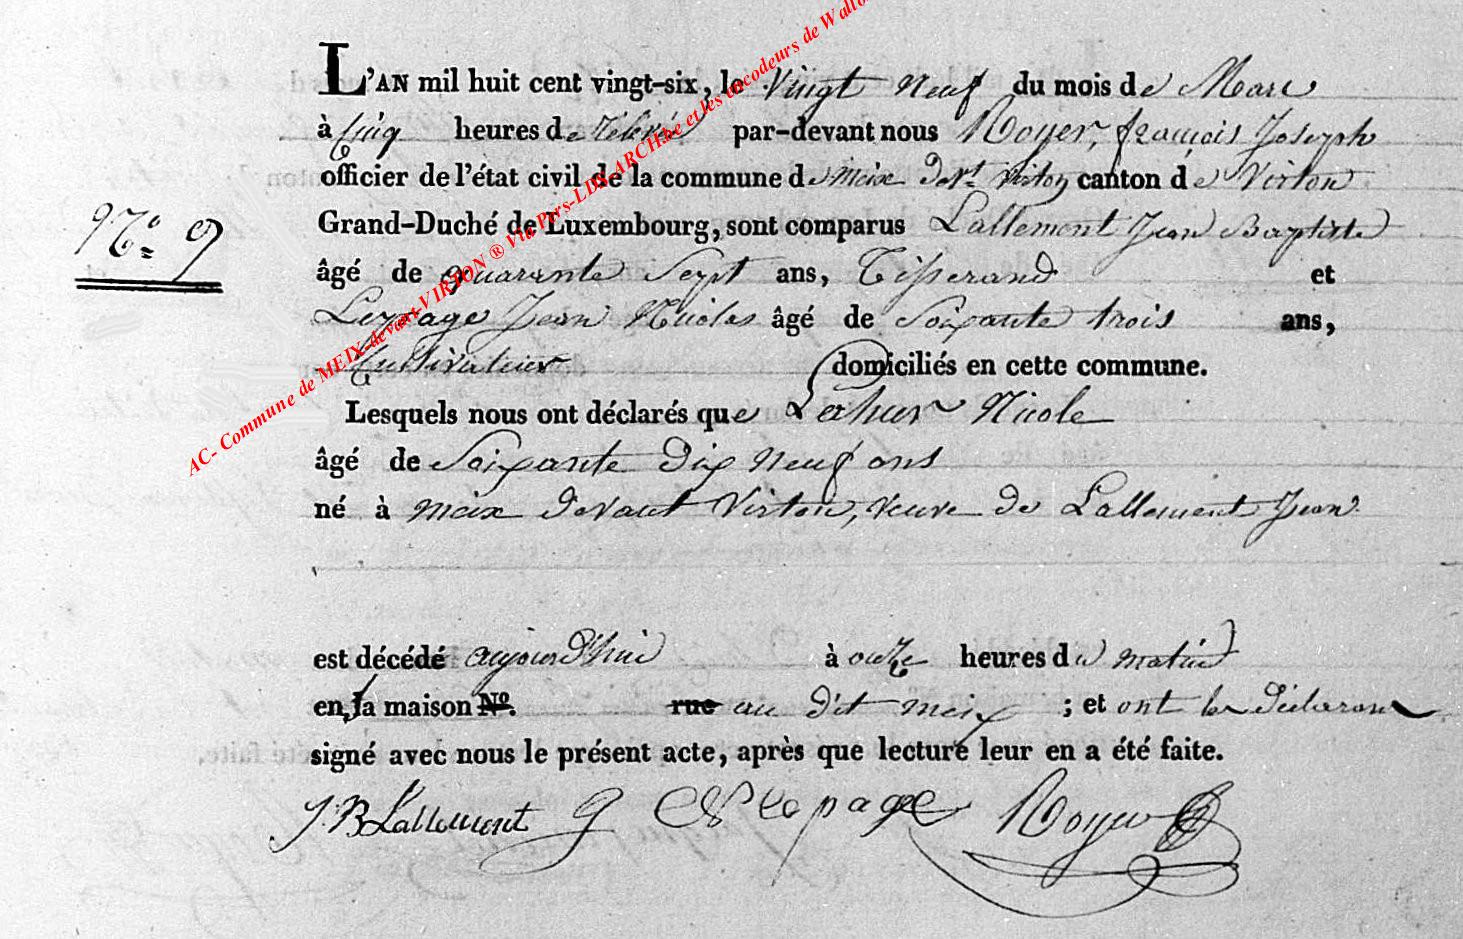 AC- Commune de MEIX-devant-VIRTON ® Via Pers-LDX-ARCH.be et les encodeurs de Wallo
L'AN mil huit cent vingt-six, le vingt neuf du mois de Mars
à Cinq heures de relevée par-devant nous Royer, françois Joseph
officier de l'état civil de la commune de meix devt virton canton de Virton
Grand-Duché de Luxembourg, sont comparus Lallemont Jean Baptiste
N° 9
âgé de quarante Sept ans, Tisserand et
Lepage Jean Nicolas âgé de Soixante trois ans,
Cultivateur domiciliés en cette commune.
Lesquels nous ont déclarés que Lahur Nicole
âgé de Soixante dix neuf ans
né à meix devant Virton, veuve de Lallement Jean
est décédé aujourd'hui à onze heures du matin
en la maison N°. rue au dit meix ; et ont les déclarans
signé avec nous le présent acte, après que lecture leur en a été faite.
J. B Lallemont lepage Royer